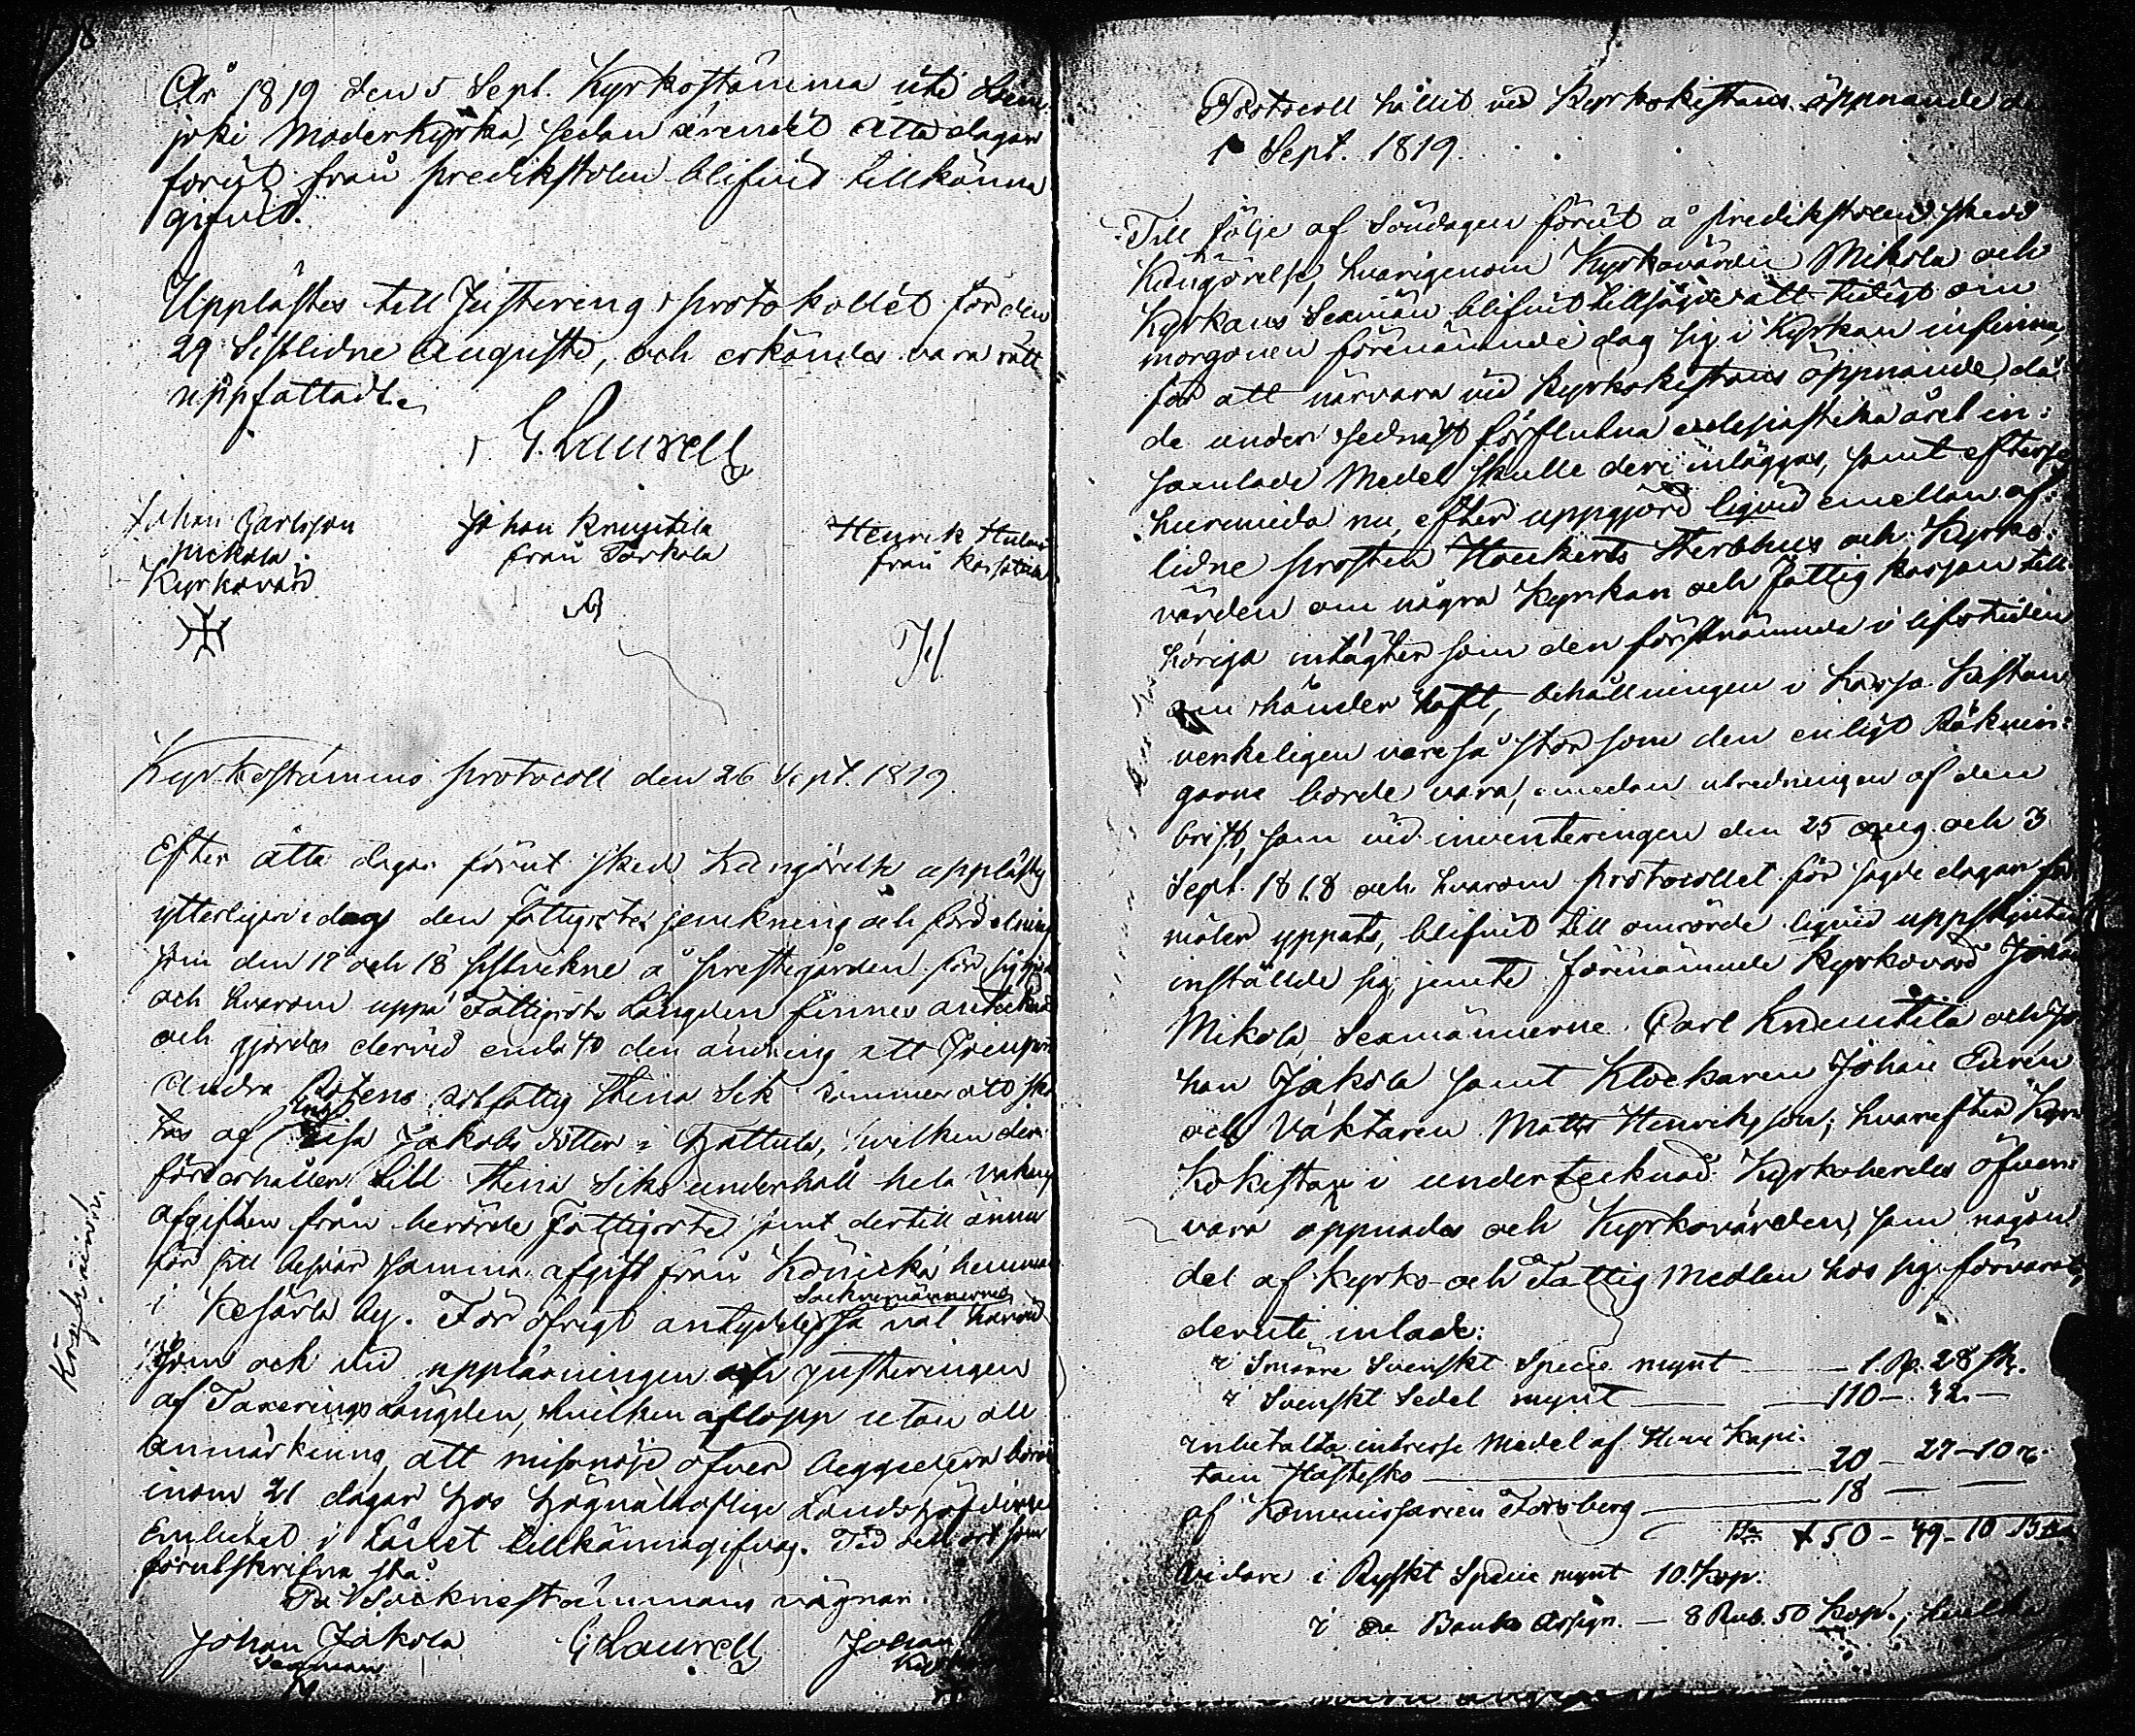 År 1819 den 5 Sept. Kyrkostämma uti Lim-
joki Moderkyrka, sedan ärendet åtta dagar
förut från predikstolen blifvit tillkänna
gifvit.
Upplästes till Justering protokollet för den
29 Sistlidne Augusti, och erkändes vara rätt
uppfattadt.
G. Laurell
Johan Carlsson
Mickola
Kyrkovärd
Johan Knuutila
från Torkola
Henrik
från
H
Kyrkostämmo protocoll den 26 Sept. 1819.
Efter åtta dagar förut sked Kungörelse upplästes
ytterligare i dag den fattigrote jemkning och fördelning
som den 17 och 18 sistvekne å prestegården för sig
och hvarom uppå Fattigrote Längden finnes antecknadt
och gjordes dervid endast den ändring att
Andra Rotens Stina Sik kommer att skö
tas af Lisa Jakobs dotter i Hattula, hvilken der-
före erhåller till Stina Siks underhåll hela
afgiften från berörde Fattigrote samt dertill ännu
för sitt besvär samma afgift från Könickä hemman
i Kesärlä by. För öfrigt antyddes Socknemännerne så väl härvid
som och vid uppläsningen och justeringen
af Taxerings Längden, hvilken aflopp utan all
anmärkning, att missnöje öfver beggedera böra
inom 21 dagar hos Högvälloflige Landshöfdinge
Embetet i Länet tillkännagifvas. Tid och ort som
förutskrifna stå.
På Socknestämmans vägnar
Johan Jakola
Sexman
G Laurell
Johan
Protocoll hållit vid Kyrkokistans öppnande d
1 Sept. 1819.
Till följe af Söndagen förut å predikstolen skedd
Kungörelse, hvarigenom Kyrkovärden Mikola och
Kyrkans Sexmän blifvit tillsagde att tidigt om
morgonen förenämnde dag sig i Kyrkan infinna,
för att närvara vid Kyrkokistans öppnande, då
de under sednast förflutna ecclesiastika året in-
samlade Medel skulle deri inläggas, samt efterse
huruvida nu, efter uppgjord liqvid emellan af-
lidne prosten Haukerts Sterbhus och Kyrko-
värden om några Kyrkan och fattig kassan till-
höriga intägter som den förstnämnda i lifstiden
om händer haft, behållningen i kassa kistan
verkeligen vore så stor som den enligt Räknin-
garne borde vara, emedan utredningen af den
brist, som vid inventeringen den 25 Aug. och 3
Sept. 1818 och hvarom protocollet för sagde dagar för
mäler yppats, blifvit till omrörde liqvid uppskjuten
inställde sig jemte förenämnde Kyrkovärd Johan
Mikola, Sexmännerne Carl Knuutila och Jo
han Jakola samt Klockaren Johan Eurén
och Väktaren Matts Henriksson; hvarefter Kyr
kokistan i undertecknad Kyrkoherdes öfver-
varo öppnades och Kyrkovärden, som någon
del af Kyrko- och Fattig Medlen hos sig förvarat,
deruti inlade:
i Smärre Svenskt Specie mynt — 1. Rp. 28 sk.
i Svenskt Sedel mynt — 110 — 42. —
inbetalta intresse Medel af Herr Kapi-
tain Hästesko — 20 — 27 — 10 r.
af Kommissarien Forsberg — 18 — —
150 — 49 — 10 Banco
vidare i Ryskt Specie mynt 10 Kop.
i de Banko Assign. — 8 Rub. 50 Kop.; hvilka